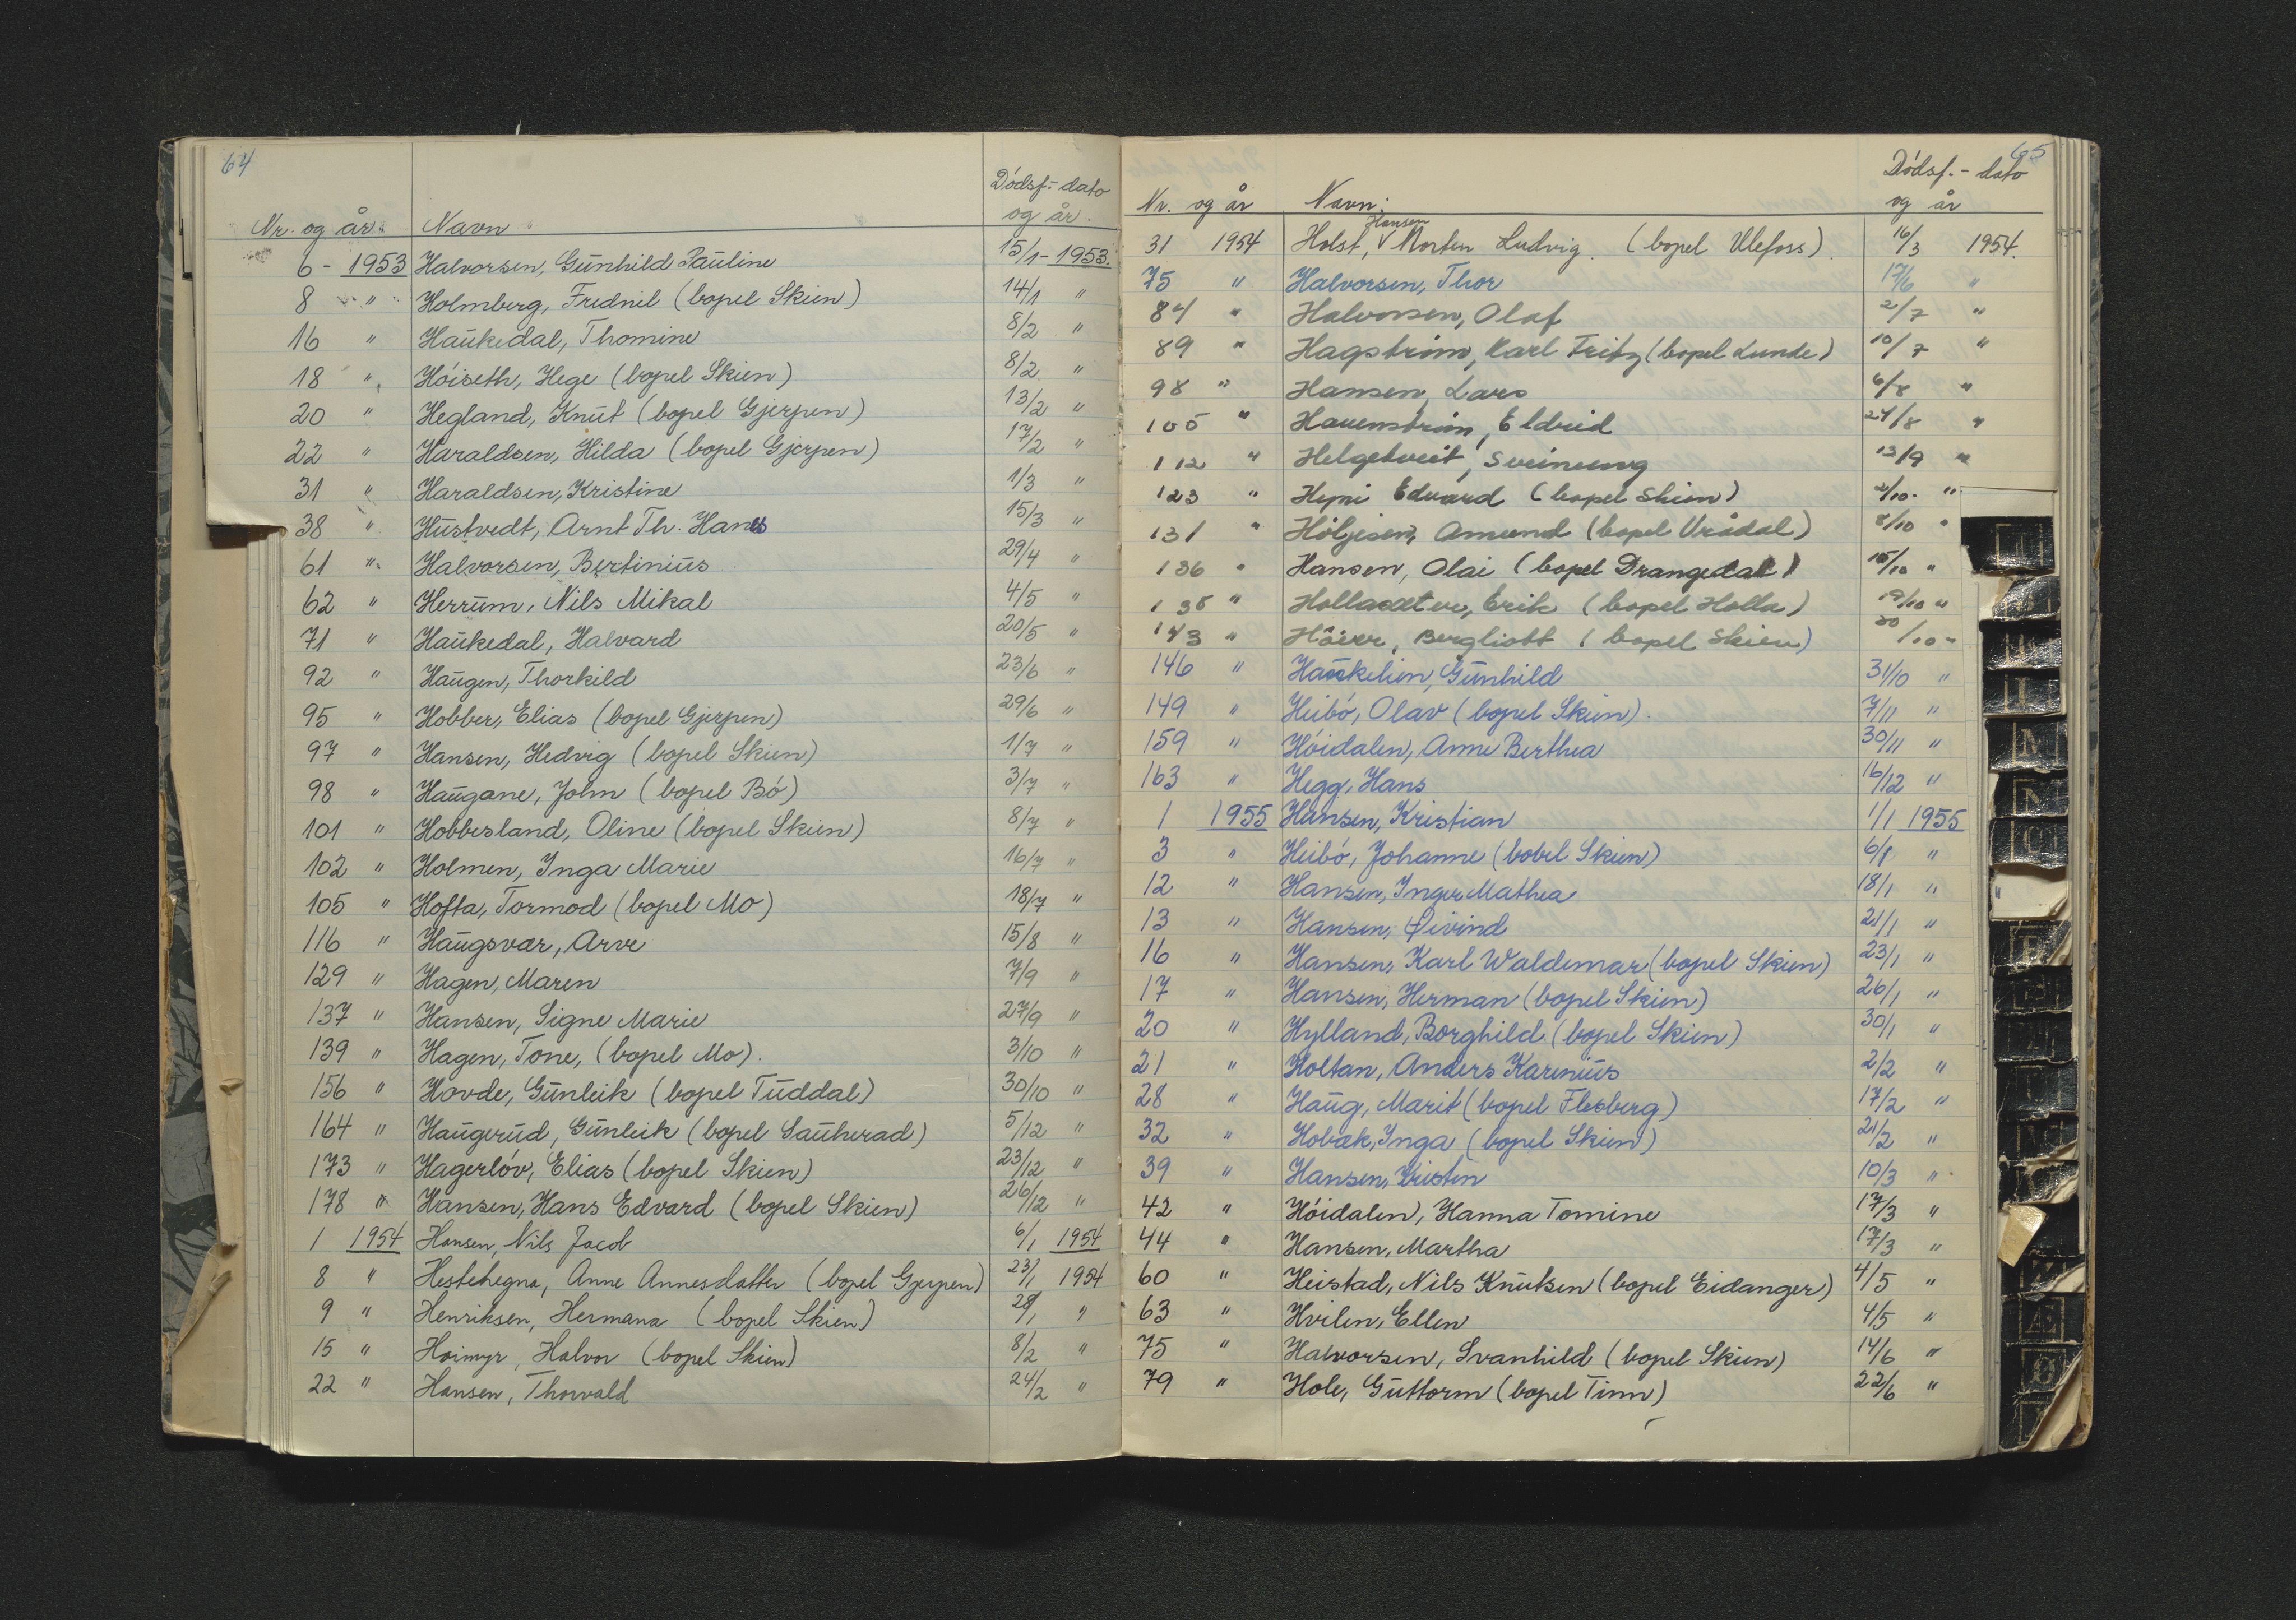 64
Dødsf.- dato
Nr. og år. Navn og år.
6 - 1953 Halvorsen, Gunhild Pauline 15/1 - 1953.
8 " Holmberg, Frednil (bopel Skien) 14/1 "
16 " Haukedal, Thomine 8/2 "
18 " Høiseth, Hege (bopel Skien) 8/2 "
20 " Hegland, Knut (bopel Gjerpen) 13/2 "
22 " Haraldsen, Hilda (bopel Gjerpen) 17/2 "
31 " Haraldsen, Kristine 1/3 "
38 " Hustvedt, Arnt Th. Hans 15/3 "
61 " Halvorsen, Bertinius 29/4 "
62 " Herrum, Nils Mikal 4/5 "
71 " Haukedal, Halvard 20/5 "
92 " Haugen, Thorkild 23/6 "
95 " Hobber, Elias (bopel Gjerpen) 29/6 "
97 " Hansen, Hedvig (bopel Skien) 1/7 "
98 " Haugane, John (bopel Bø) 3/7 "
101 " Hobbesland, Oline (bopel Skien) 8/7 "
102 " Holmen, Inga Marie 16/7 "
105 " Hofta, Tormod (bopel Mo) 18/7 "
116 " Haugsvær, Arve 15/8 "
129 " Hagen, Maren 7/9 "
137 " Hansen, Signe Marie 27/9 "
139 " Hagen, Tone, (bopel Mo). 3/10 "
156 " Hovde, Gunleik (bopel Tuddal) 30/10 "
164 " Haugerud, Gunleik (bopel Sauherad) 5/12 "
173 " Hagerløv, Elias (bopel Skien) 23/12 "
178 " Hansen, Hans Edvard (bopel Skien) 26/12 "
1 1954 Hansen, Nils Jacob 6/1 1954
8 " Hestehegna, Anne Annesdatter (bopel Gjerpen) 23/1 1954
9 " Henriksen, Hermana (bopel Skien) 28/1 "
15 " Hoimyr, Halvor (bopel Skien) 8/2 "
22 " Hansen, Thorvald 24/2 "
65
Dødsf.- dato
Nr. og år Navn: og år
Hansen
31 1954 Holst, Morten Ludvig. (bopel Ulefoss). 16/3 1954.
75 " Halvorsen, Thor 17/6 "
84 " Halvorsen, Olaf 2/7 "
89 " Hagstrøm, Karl Fritz (bopel Lunde) 10/7 "
98 " Hansen, Lars 6/8 "
105 " Hauenstrøm, Eldrid 24/8 "
112 " Helgetveit, Sveinung 13/9 "
123 " Edvard (bopel Skien) 2/10. "
131 " Høljesen, Amund (bopel Vrådal) 8/10 "
136 " Hansen, Olai (bopel Drangedal) 15/10 "
138 " Hollasæter, Erik (bopel Holla) 19/10 "
143 " Høier, Bergliott (bopel Skien) 20/10 "
146 " Haukelien, Gunhild 31/10 "
149 " Heibø, Olav (bopel Skien). 7/11 "
159 " Høidalen, Anne Berthea 30/11 "
163 " Hegg, Hans 16/12 "
1 1955 Hansen, Kristian 1/1 1955
3 " Heibø, Johanne (bobel Skien) 6/1 "
12 " Hansen, Inger Mathea 18/1 "
13 " Hansen, Øivind 21/1 "
16 " Hansen, Karl Waldemar (bopel Skien) 23/1 "
17 " Hansen, Herman (bopel Skien) 26/1 "
20 " Hylland, Borghild (bopel Skien) 30/1 "
21 " Holtan, Anders Karenius 2/2 "
28 " Haug, Marit (bopel Flesberg) 17/2 "
32 " Hobæk, Inga (bopel Skien) 21/2 "
39 " Hansen, Kristen 10/3 "
42 " Høidalen, Hanna Tomine 17/3 "
44 " Hansen, Martha 17/3 "
60 " Heistad, Nils Knutsen (bopel Eidanger) 4/5 "
63 " Hvilen, Ellen 4/5 "
75 " Halvorsen, Svanhild (bopel Skien) 14/6 "
79 " Hole, Guttorm (bopel Tinn) 22/6 "
M
N
Æ
Ø